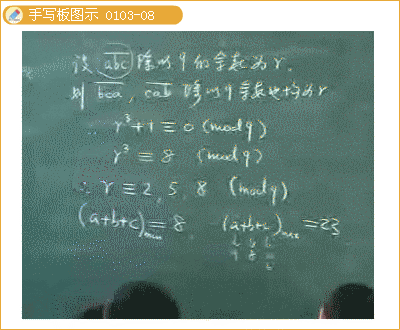 手写板图示 0103-08
设 abc 除以9的余数为r,
则 bca, cab 除以9余数也均为r
∴ r³+1≡0 (mod 9)
r³≡8 (mod 9)
∴ r≡2, 5, 8 (mod 9)
(a+b+c)min=8, (a+b+c)max=23
9 8